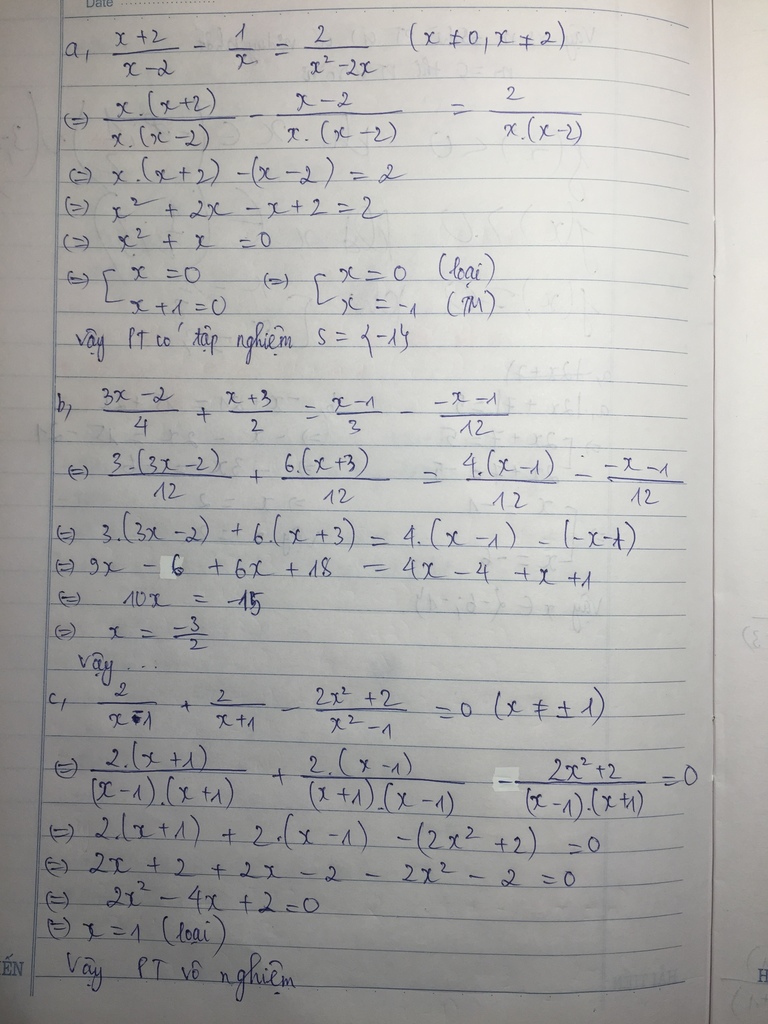 Date
a, (x+2)/(x-2) - 1/x = 2/(x²-2x) (x ≠ 0, x ≠ 2)
(=) x.(x+2)/x.(x-2) - (x-2)/x.(x-2) = 2/x.(x-2)
(=) x.(x+2) - (x-2) = 2
(=) x² + 2x - x + 2 = 2
(=) x² + x = 0
(=) [ x = 0 (=) [ x = 0 (loại)
x + 1 = 0 x = -1 (TM)
Vậy PT có tập nghiệm S = {-1}
b, (3x-2)/4 + (x+3)/2 = (x-1)/3 - (-x-1)/12
(=) 3.(3x-2)/12 + 6.(x+3)/12 = 4.(x-1)/12 - (-x-1)/12
(=) 3.(3x-2) + 6.(x+3) = 4.(x-1) - (-x-1)
(=) 9x - 6 + 6x + 18 = 4x - 4 + x + 1
(=) 10x = -15
(=) x = -3/2
Vậy ...
c, 2/(x-1) + 2/(x+1) - (2x²+2)/(x²-1) = 0 (x ≠ ±1)
(=) 2.(x+1)/(x-1).(x+1) + 2.(x-1)/(x+1).(x-1) - (2x²+2)/(x-1).(x+1) = 0
(=) 2.(x+1) + 2.(x-1) - (2x²+2) = 0
(=) 2x + 2 + 2x - 2 - 2x² - 2 = 0
(=) 2x² - 4x + 2 = 0
(=) x = 1 (loại)
Vậy PT vô nghiệm
ẾN
H